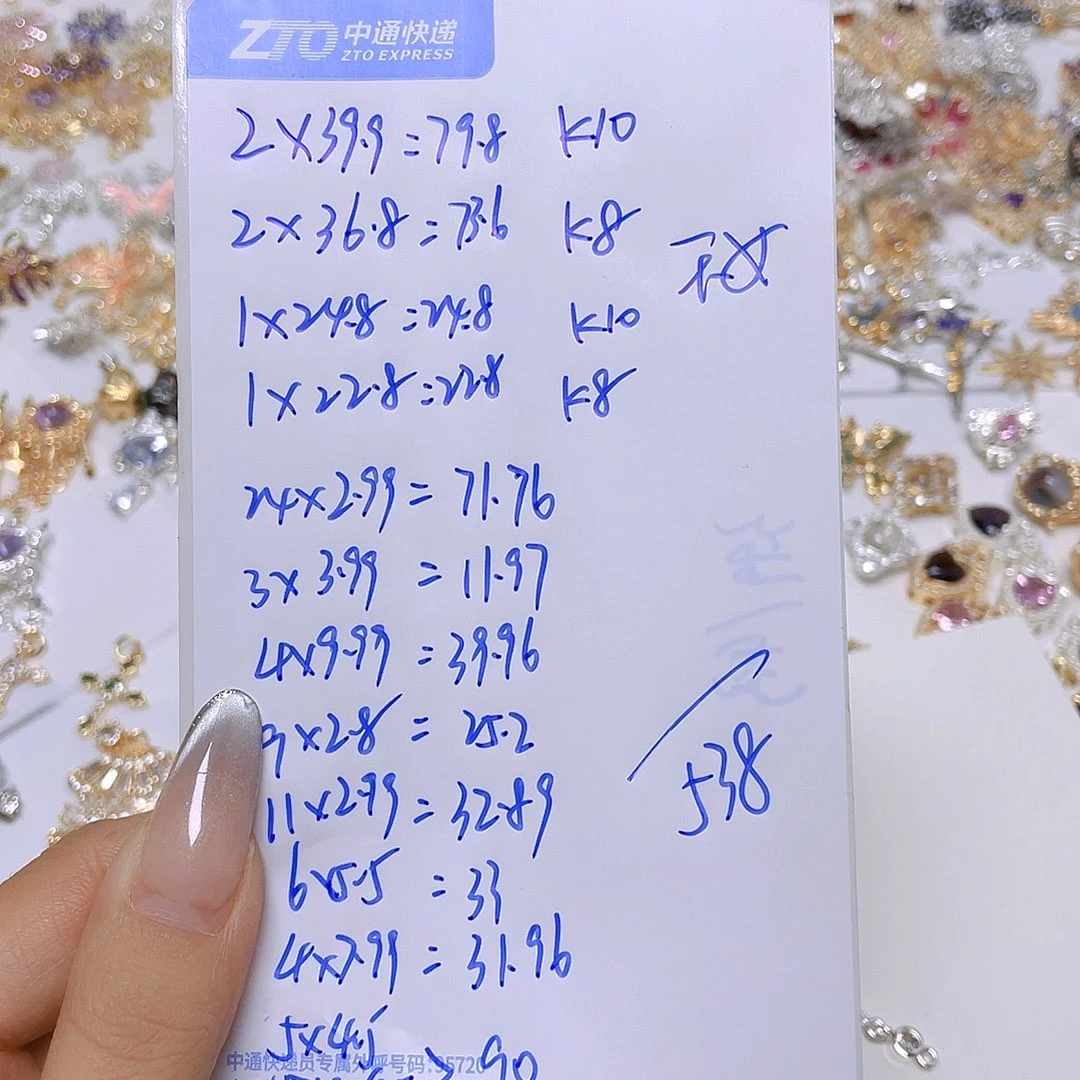 ZTO 中通快递
ZTO EXPRESS
2×39.9=79.8 K10
2×36.8=73.6 K8
1×24.8=24.8 K10
1×22.8=22.8 K8
24×2.99=71.76
3×3.99=11.97
4×9.99=39.96
9×2.8=25.2
11×2.99=32.89
538
6×5.5=33
4×7.99=31.96
5×4.5
中通快递员专属外呼号码:95720
90